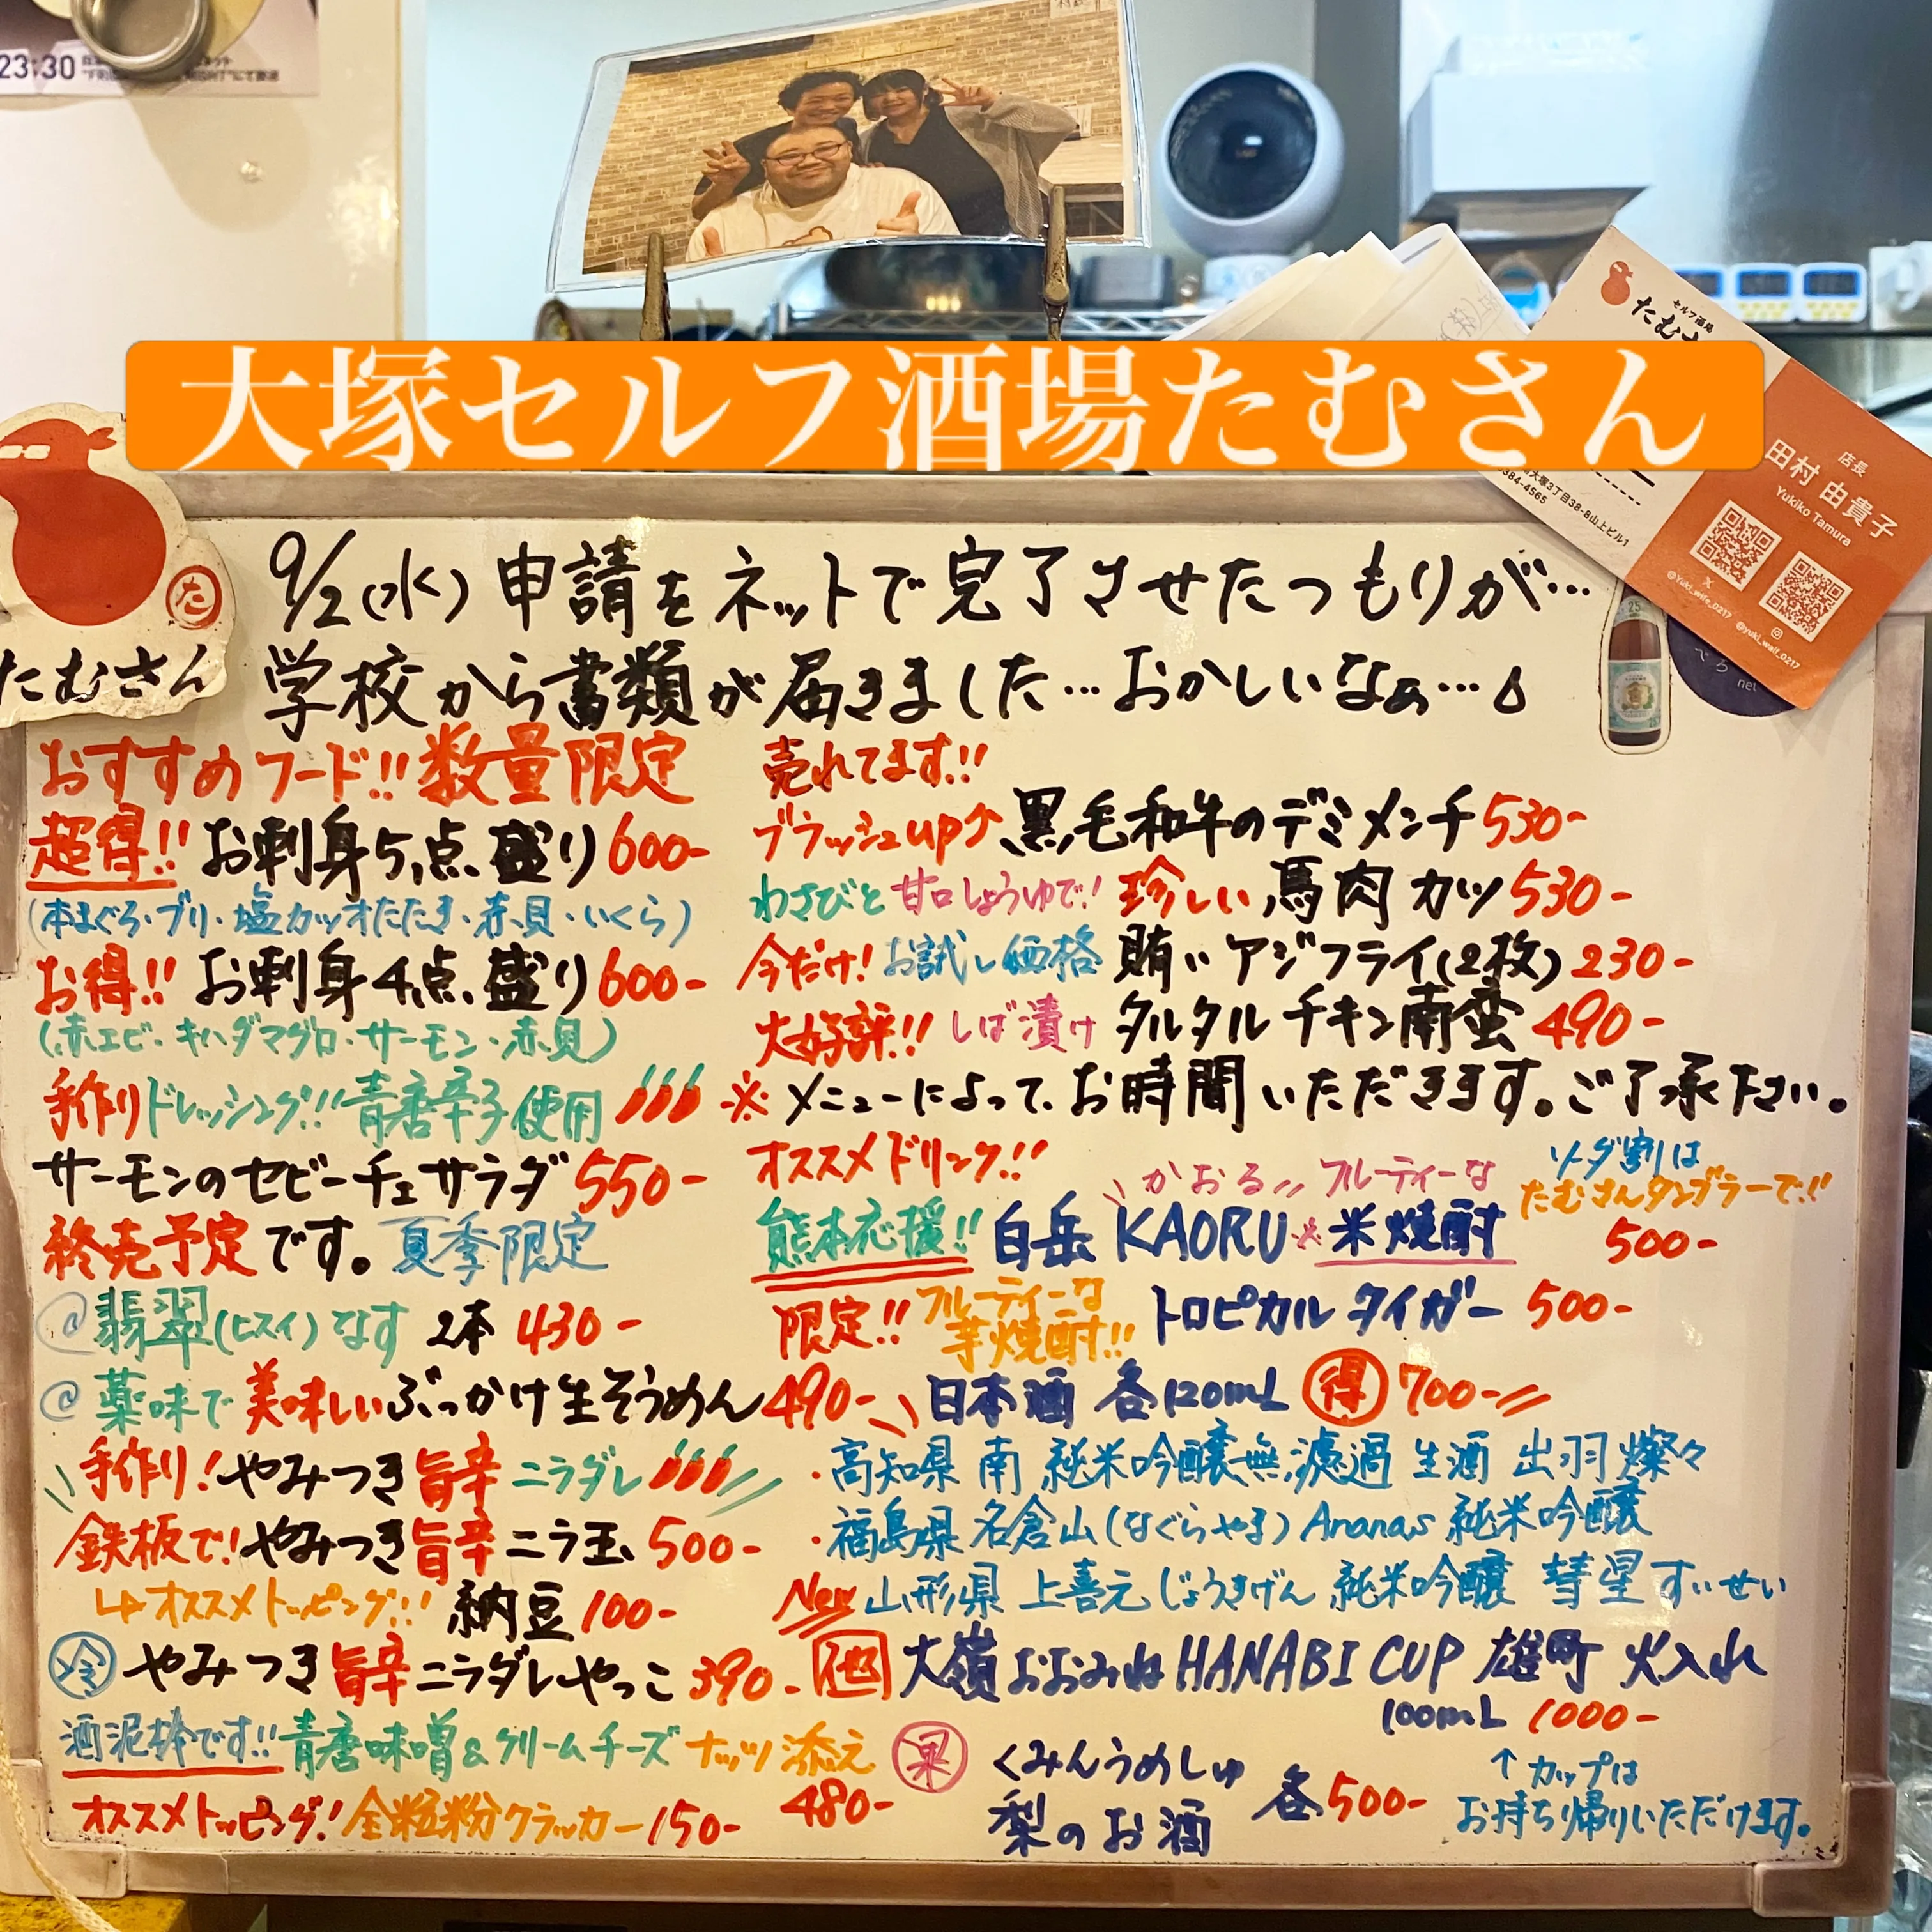 23:30
大塚セルフ酒場たむさん
セルフ酒場
店長
田村 由貴子
Yukiko Tamura
大塚3丁目38-8山上ビル1
384-4565
@yuki_wife_0217
@yuki_waif_0217
net
25
た
たむさん
9/2(水) 申請をネットで完了させたつもりが…
学校から書類が届きました…おかしいなぁ…
おすすめフード!! 数量限定
超得!! お刺身5点盛り 600-
(本まぐろ・ブリ・塩カツオたたき・赤貝・いくら)
お得!! お刺身4点盛り 600-
(赤エビ・キハダマグロ・サーモン・赤貝)
手作りドレッシング!! 青唐辛子使用
サーモンのセビーチェサラダ 550-
終売予定です。夏季限定
@翡翠(ヒスイ)なす 2本 430-
@薬味で美味しいぶっかけ生そうめん 490-
手作り!やみつき旨辛ニラダレ
鉄板で!やみつき旨辛ニラ玉 500-
↳オススメトッピング!! 納豆 100-
冷 やみつき旨辛ニラダレやっこ 390-
酒泥棒です!! 青唐味噌&クリームチーズ ナッツ添え 480-
オススメトッピング!全粒粉クラッカー 150-
売れてます!!
ブラッシュup↑黒毛和牛のデミメンチ 530-
わさびと甘口しょうゆで!珍しい馬肉カツ 530-
今だけ!お試し価格 賄いアジフライ(2枚) 230-
大好評!! しば漬けタルタルチキン南蛮 490-
※メニューによって、お時間いただきます。ご了承下さい。
オススメドリンク!!
かおる フルーティーな
ソーダ割は
たむさんタンブラーで!!
熊本応援!! 白岳 KAORU※米焼酎 500-
限定!! フルーティーな芋焼酎!! トロピカルタイガー 500-
日本酒 各120mL 得 700-
・高知県 南 純米吟醸無濾過 生酒 出羽燦々
・福島県 名倉山(なぐらやま) Ananas 純米吟醸
New 山形県 上喜元 じょうきげん 純米吟醸 彗星 すいせい
大嶺 おおみね HANABI CUP 雄町 火入れ
100mL 1000-
↑カップは
お持ち帰りいただけます。
果 くみんうめしゅ
梨のお酒 各500-